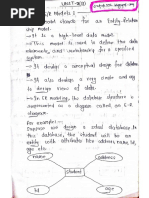 UNIT-2(II)
ER Model :-
→ ER model stands for an Entity-Relation
ship model.
→ It is a high-level data model.
→ This model is used to define the data
elements and relationship for a specified
system.
→ It develops a conceptual design for the
database.
→ It also develops a very simple and easy
to design view of data.
→ In ER modeling, the database structure is
represented as a diagram called an E-R
diagram.
Example :-
Suppose we design a school database. In
this database, the student will be an
entity with attributes like address, name, id,
age etc.
name
address
student
Id
age